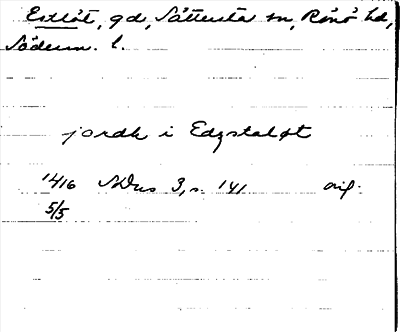 Estlöt, gd, Sättersta sn, Rönö hd,
Söderm. l.
jordh i Edzstaløt
1416 SDns 3, s. 141 orig.
5/5